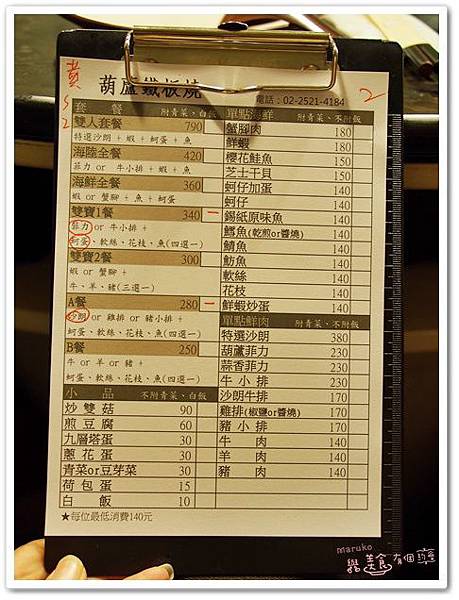 黃
葫蘆鐵板燒
電話：02-2521-4184
2
套 餐 附青菜、白飯
雙人套餐 790
特選沙朗 + 蝦 + 蚵蛋 + 魚
海陸全餐 420
菲力 or 牛小排 + 蝦 + 魚
海鮮全餐 360
蝦 or 蟹腳 + 魚 + 蚵蛋
雙寶1餐 340 一
菲力 or 牛小排 +
蚵蛋、軟絲、花枝、魚(四選一)
雙寶2餐 300
蝦 or 蟹腳 +
牛、羊、豬(三選一)
A餐 280 一
沙朗 or 雞排 or 豬小排 +
蚵蛋、軟絲、花枝、魚(四選一)
B餐 250
牛 or 羊 or 豬 +
蚵蛋、軟絲、花枝、魚(四選一)
小 品 不附青菜、白飯
炒雙菇 90
煎豆腐 60
九層塔蛋 30
蔥花蛋 30
青菜or豆芽菜 30
荷包蛋 15
白 飯 10
★每位最低消費140元
單點海鮮 附青菜、不附飯
蟹腳肉 180
鮮蝦 180
櫻花鮭魚 150
芝士干貝 150
蚵仔加蛋 140
蚵仔 140
錫紙原味魚 140
鱈魚(乾煎or醬燒) 140
鯖魚 140
魴魚 140
軟絲 140
花枝 140
鮮蝦炒蛋 140
單點鮮肉 附青菜、不附飯
特選沙朗 380
葫蘆菲力 230
蒜香菲力 230
牛小排 230
沙朗牛排 170
雞排(椒鹽or醬燒) 170
豬小排 170
牛 肉 140
羊 肉 140
豬 肉 140
maruko
美食有個夢